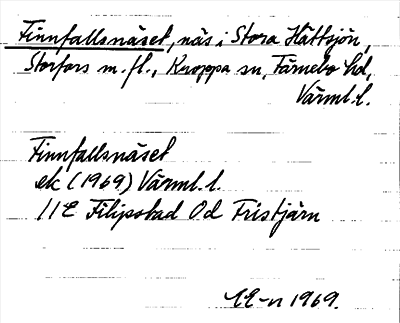 Finnfallsnäset, näs i Stora Hättsjön,
Storfors m.fl., Kroppa sn, Färnebo hd,
Värml.l.
Finnfallsnäset
ek (1969) Värml.l.
11E Filipstad 0d Fristjärn
1969.